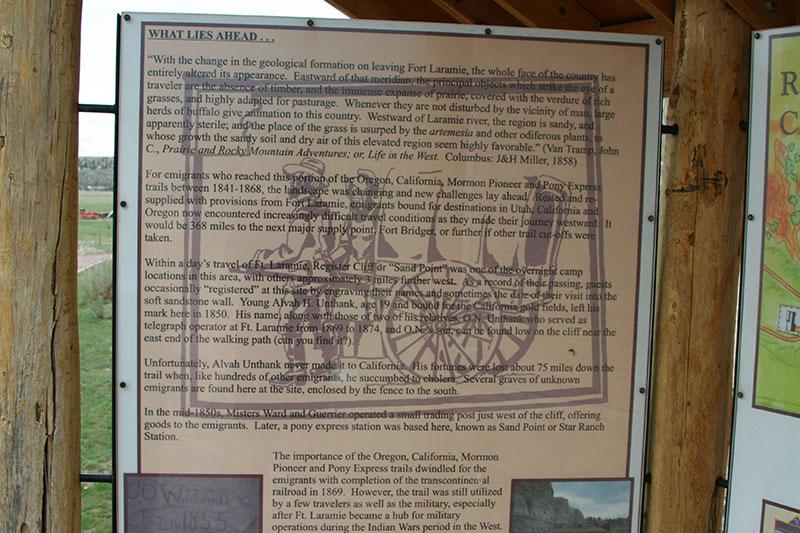 WHAT LIES AHEAD . . .
"With the change in the geological formation on leaving Fort Laramie, the whole face of the country has
entirely altered its appearance. Eastward of that meridian, the principal objects which strike the eye of a
traveler are the absence of timber, and the immense expanse of prairie, covered with the verdure of rich
grasses, and highly adapted for pasturage. Whenever they are not disturbed by the vicinity of man, large
herds of buffalo give animation to this country. Westward of Laramie river, the region is sandy, and
apparently sterile; and the place of the grass is usurped by the artemesia and other odiferous plants, to
whose growth the sandy soil and dry air of this elevated region seem highly favorable." (Van Tramp, John
C., Prairie and Rocky Mountain Adventures; or, Life in the West. Columbus: J&H Miller, 1858)
For emigrants who reached this portion of the Oregon, California, Mormon Pioneer and Pony Express
trails between 1841-1868, the landscape was changing and new challenges lay ahead. Rested and re-
supplied with provisions from Fort Laramie, emigrants bound for destinations in Utah, California and
Oregon now encountered increasingly difficult travel conditions as they made their journey westward. It
would be 368 miles to the next major supply point, Fort Bridger, or further if other trail cut-offs were
taken.
Within a day's travel of Ft. Laramie, Register Cliff or "Sand Point" was one of the overnight camp
locations in this area, with others approximately 3 miles further west. As a record of their passing, guests
occasionally "registered" at this site by engraving their names and sometimes the date of their visit into the
soft sandstone wall. Young Alvah H. Unthank, age 19 and bound for the California gold fields, left his
mark here in 1850. His name, along with those of two of his relatives, O.N. Unthank who served as
telegraph operator at Ft. Laramie from 1869 to 1874, and O.N.'s son, can be found low on the cliff near the
east end of the walking path (can you find it?).
Unfortunately, Alvah Unthank never made it to California. His fortunes were lost about 75 miles down the
trail when, like hundreds of other emigrants, he succumbed to cholera. Several graves of unknown
emigrants are found here at the site, enclosed by the fence to the south.
In the mid-1850s, Misters Ward and Guerrier operated a small trading post just west of the cliff, offering
goods to the emigrants. Later, a pony express station was based here, known as Sand Point or Star Ranch
Station.
The importance of the Oregon, California, Mormon
Pioneer and Pony Express trails dwindled for the
emigrants with completion of the transcontinental
railroad in 1869. However, the trail was still utilized
by a few travelers as well as the military, especially
after Ft. Laramie became a hub for military
operations during the Indian Wars period in the West.
1855
R
C